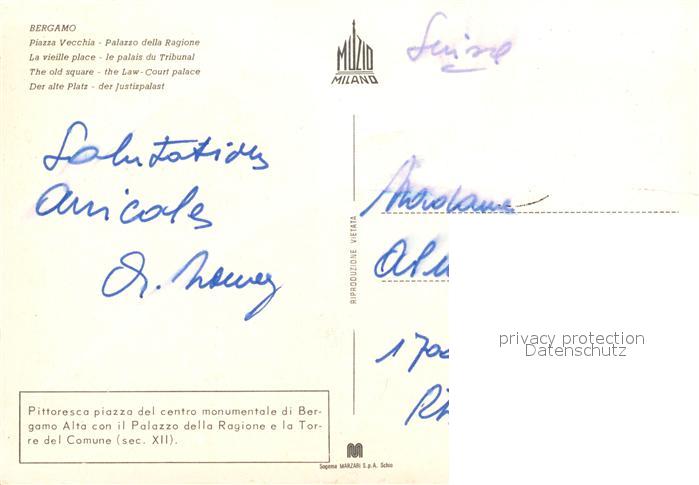 BERGAMO
Piazza Vecchia - Palazzo della Ragione
La vieille place - le palais du Tribunal
The old square - the Law-Court palace
Der alte Platz - der Justizpalast
MUZIO
MILANO
Suisse
Salutations
amicales
Madame
1700
RIPRODUZIONE VIETATA
privacy protection
Datenschutz
Pittoresca piazza del centro monumentale di Ber-
gamo Alta con il Palazzo della Ragione e la Tor-
re del Comune (sec. XII).
Sagoma MARZARI S.p.A. Schio